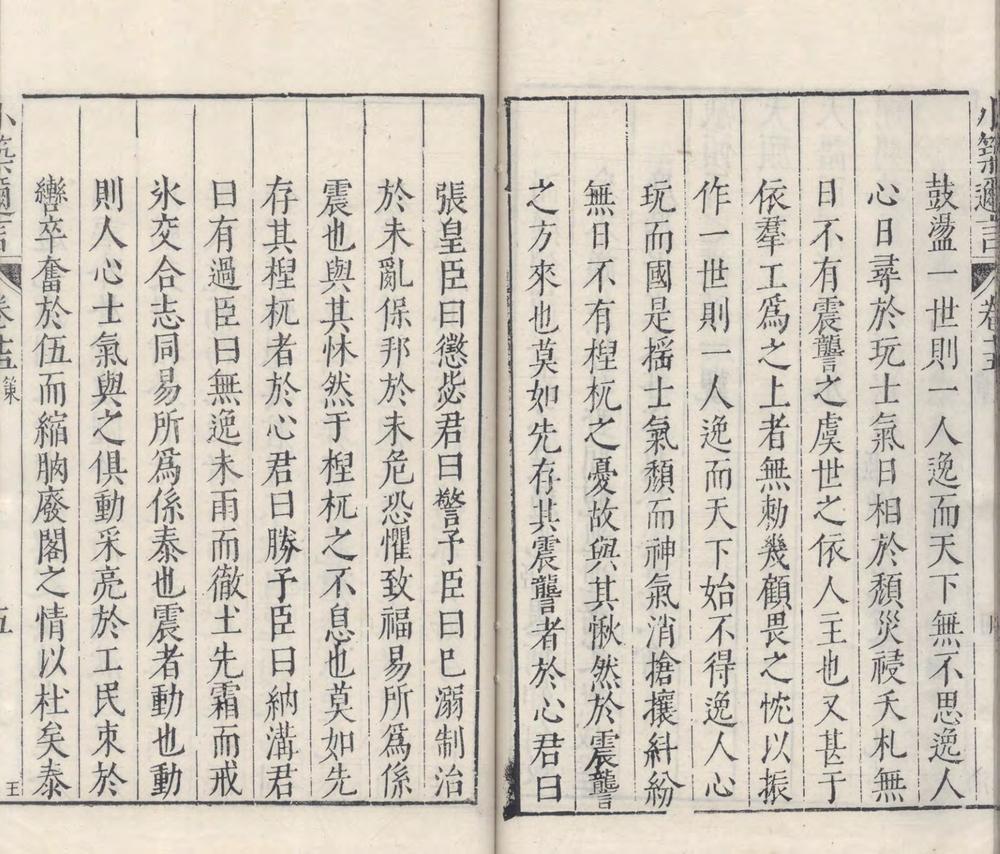 小築邇言 卷十五
鼓盪一世則一人逸而天下無不思逸人
心日尋於玩士氣日相於頽災祲夭札無
日不有震讋之虞世之依人主也又甚于
依羣工爲之上者無勑幾顧畏之忱以振
作一世則一人逸而天下始不得逸人心
玩而國是搖士氣頽而神氣消搶攘紏紛
無日不有桯杌之憂故與其愀然於震讋
之方來也莫如先存其震讋者於心君曰
張皇臣曰懲毖君曰警予臣曰巳溺制治
於未亂保邦於未危恐懼致福易所爲係
震也與其怵然于桯杌之不息也莫如先
存其桯杌者於心君曰勝予臣曰納溝君
曰有過臣曰無逸未雨而徹土先霜而戒
氷交合志同易所爲係泰也震者動也動
則人心士氣與之俱動采亮於工民朿於
轡卒奮於伍而縮朒廢閣之情以杜矣泰
小築邇言 卷十五 策 五 王